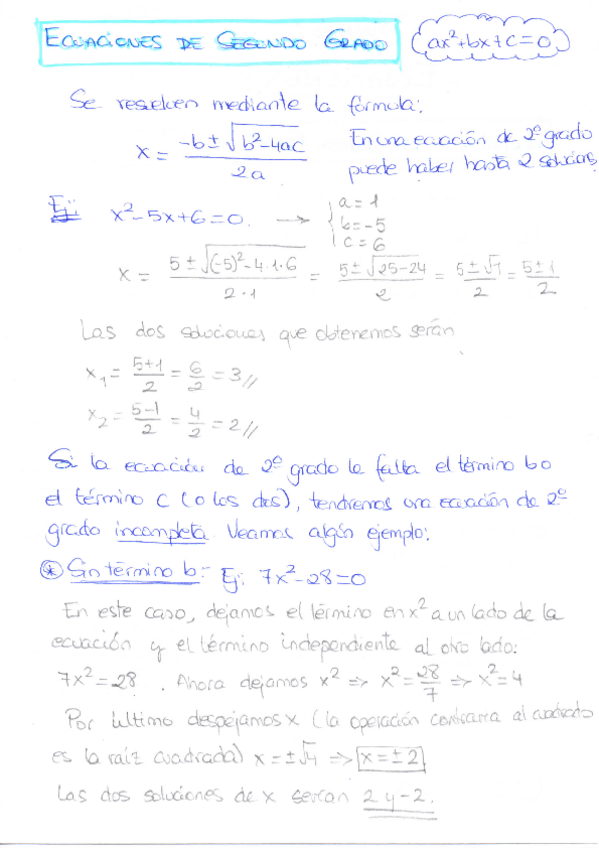 ECUACIONES DE SEGUNDO GRADO (ax²+bx+c=0)
Se resuelven mediante la fórmula:
x = (-b ± √(b²-4ac)) / 2a
En una ecuación de 2º grado
puede haber hasta 2 solucións
Ej: x²-5x+6=0. → { a=1
b=-5
c=6
x = (5 ± √((-5)²-4·1·6)) / (2·1) = (5 ± √(25-24)) / 2 = (5 ± √1) / 2 = (5 ± 1) / 2
Las dos soluciones que obtenemos serán
x₁ = (5+1)/2 = 6/2 = 3//
x₂ = (5-1)/2 = 4/2 = 2//
Si la ecuación de 2º grado le falta el término b o
el término c (o los dos), tendremos una ecuación de 2º
grado incompleta. Veamos algún ejemplo:
* Sin término b:- Ej: 7x²-28=0
En este caso, dejamos el término en x² a un lado de la
ecuación y el término independiente al otro lado:
7x²=28. Ahora dejamos x² ⇒ x²=28/7 ⇒ x²=4
Por último despejamos x (la operación contraria al cuadrado
es la raíz cuadrada) x=±√4 ⇒ x=±2
Las dos soluciones de x serían 2 y -2.